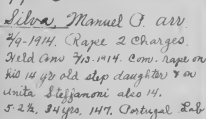 Silva, Manuel P. arr.
2/9-1914. Rape 2 Charges.
Held Ans 2/13-1914. Com. rape on
his 14 yr old step daughter & on
Anita Steffanoni also 14.
5-2¼, 34yrs, 147, Portugal Lab